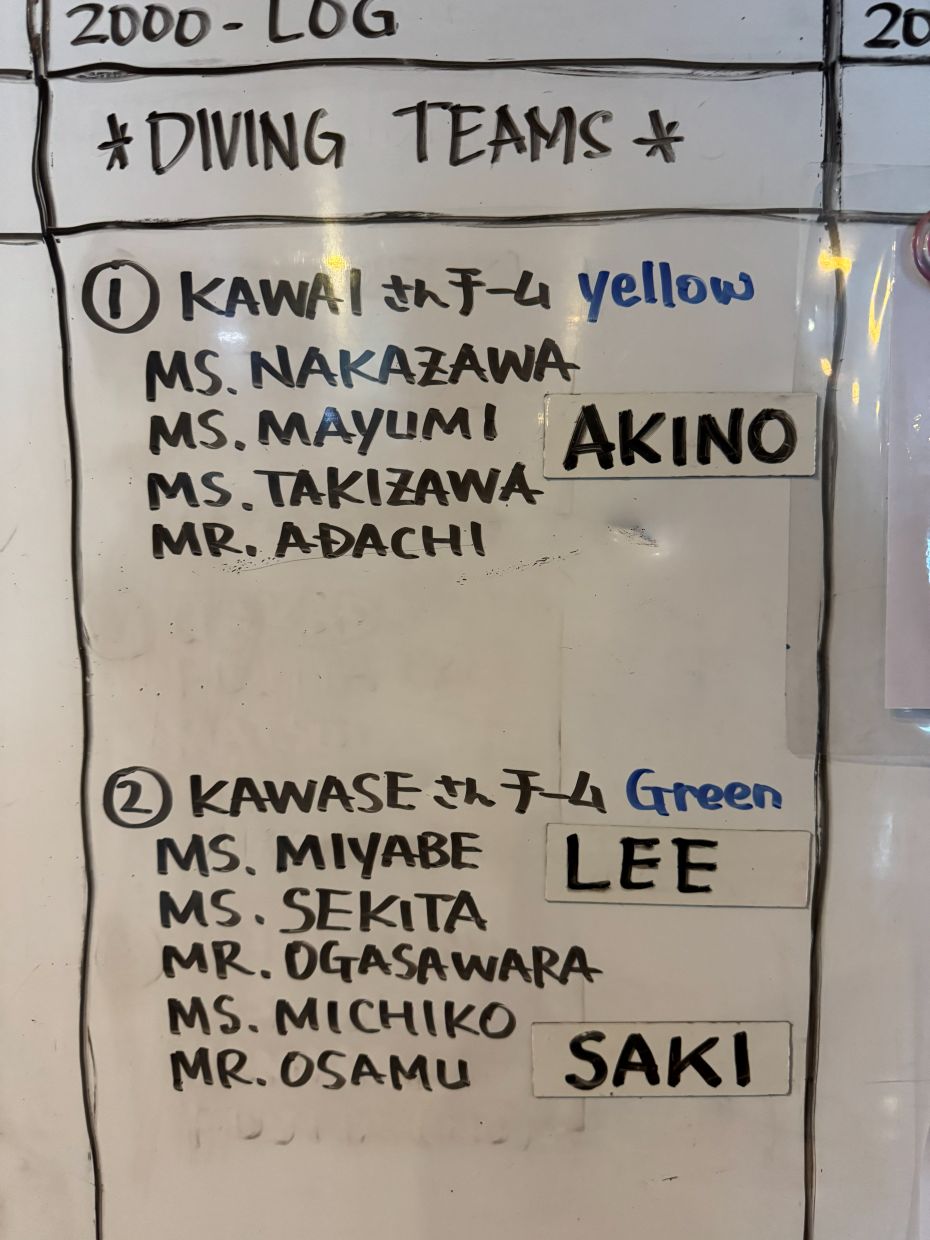 2000 - LOG
20
*DIVING TEAMS*
① KAWAI さんチーム yellow
MS. NAKAZAWA
MS. MAYUMI
AKINO
MS. TAKIZAWA
MR. ADACHI
② KAWASE さんチーム Green
MS. MIYABE
LEE
MS. SEKITA
MR. OGASAWARA
MS. MICHIKO
MR. OSAMU
SAKI